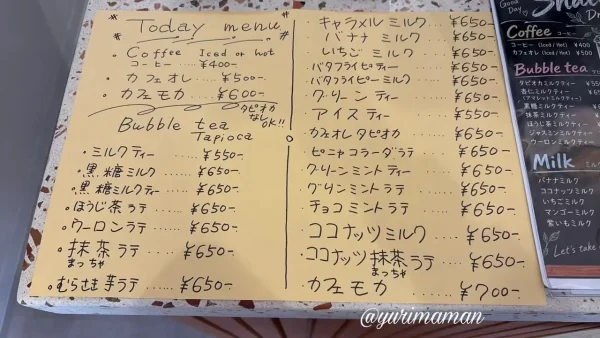 Today menu
Coffee Iced or hot
コーヒー ..... ¥400-
カフェオレ ..... ¥500-
カフェモカ ..... ¥600-
タピオカ
なし
OK!!
Bubble tea
Tapioca
ミルクティー ..... ¥550-
黒糖ミルク ..... ¥650-
黒糖ミルクティー ..... ¥650-
ほうじ茶ラテ ..... ¥650-
ウーロンラテ ..... ¥650-
抹茶ラテ ..... ¥650-
まっちゃ
むらさき芋ラテ ..... ¥650-
キャラメルミルク ..... ¥650-
バナナミルク ..... ¥650-
いちごミルク ..... ¥650-
バタフライピーティー ..... ¥650-
バタフライピーミルク ..... ¥650-
グリーンティー ..... ¥650-
アイスティー ..... ¥550-
カフェオレタピオカ ..... ¥650-
ピニャコラーダラテ ..... ¥650-
グリーンミントティー ..... ¥650-
グリンミントラテ ..... ¥650-
チョコミントラテ ..... ¥650-
ココナッツミルク ..... ¥650-
ココナッツ抹茶ラテ ..... ¥650-
まっちゃ
カフェモカ ..... ¥700-
Good
Day
Coffee コーヒー
コーヒー (Iced / Hot) ¥400
カフェオレ (Iced / Hot) ¥500
Bubble tea
タピオカミルクティー ¥550
杏仁ミルクティー
(アマレットミルクティー)
黒糖ミルクティー
抹茶ミルクティー
ほうじ茶ミルクティー
ジャスミンミルクティー
ウーロンミルクティー
Milk
バナナミルク
ココナッツミルク
いちごミルク
マンゴーミルク
紫いもミルク
Let's take
@yurimaman